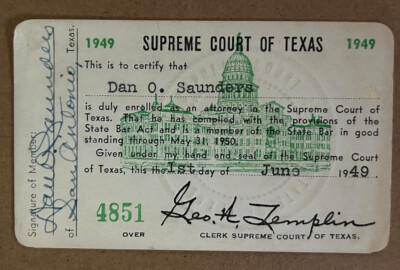 1949 SUPREME COURT OF TEXAS 1949
This is to certify that
Dan O. Saunders
is duly enrolled as an attorney in the Supreme Court of
Texas. That he has complied with the provisions of the
State Bar Act and is a member of the State Bar in good
standing through May 31, 1950.
Given under my hand and seal of the Supreme Court
of Texas, this the 1st day of June 1949.
4851
Geo. H. Templin
OVER CLERK SUPREME COURT OF TEXAS.
Signature of Member:
Dan O. Saunders
of San Antonio, Texas.